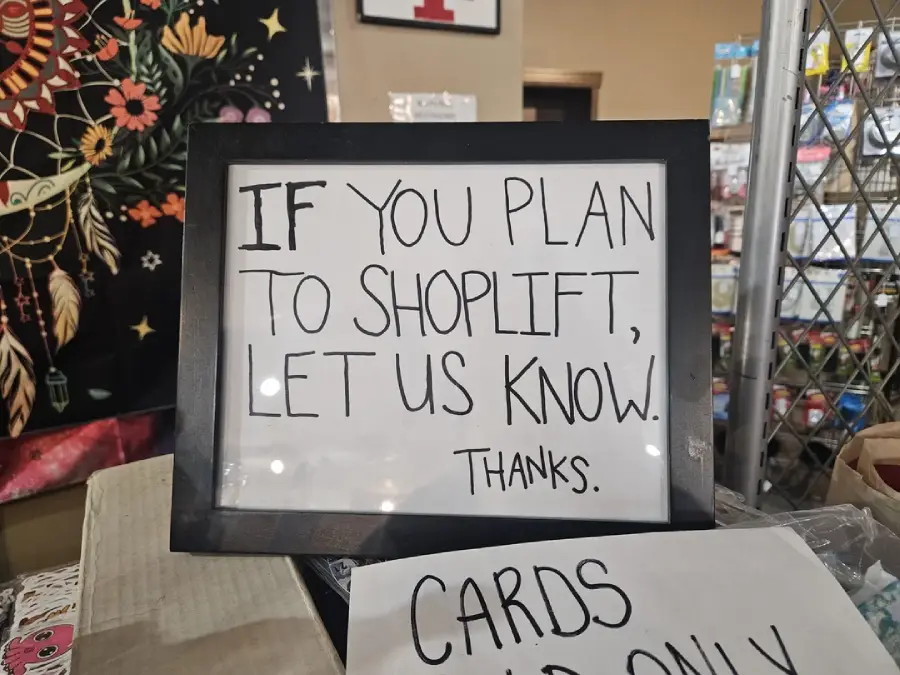 IF YOU PLAN
TO SHOPLIFT,
LET US KNOW.
THANKS.
CARDS
ONLY